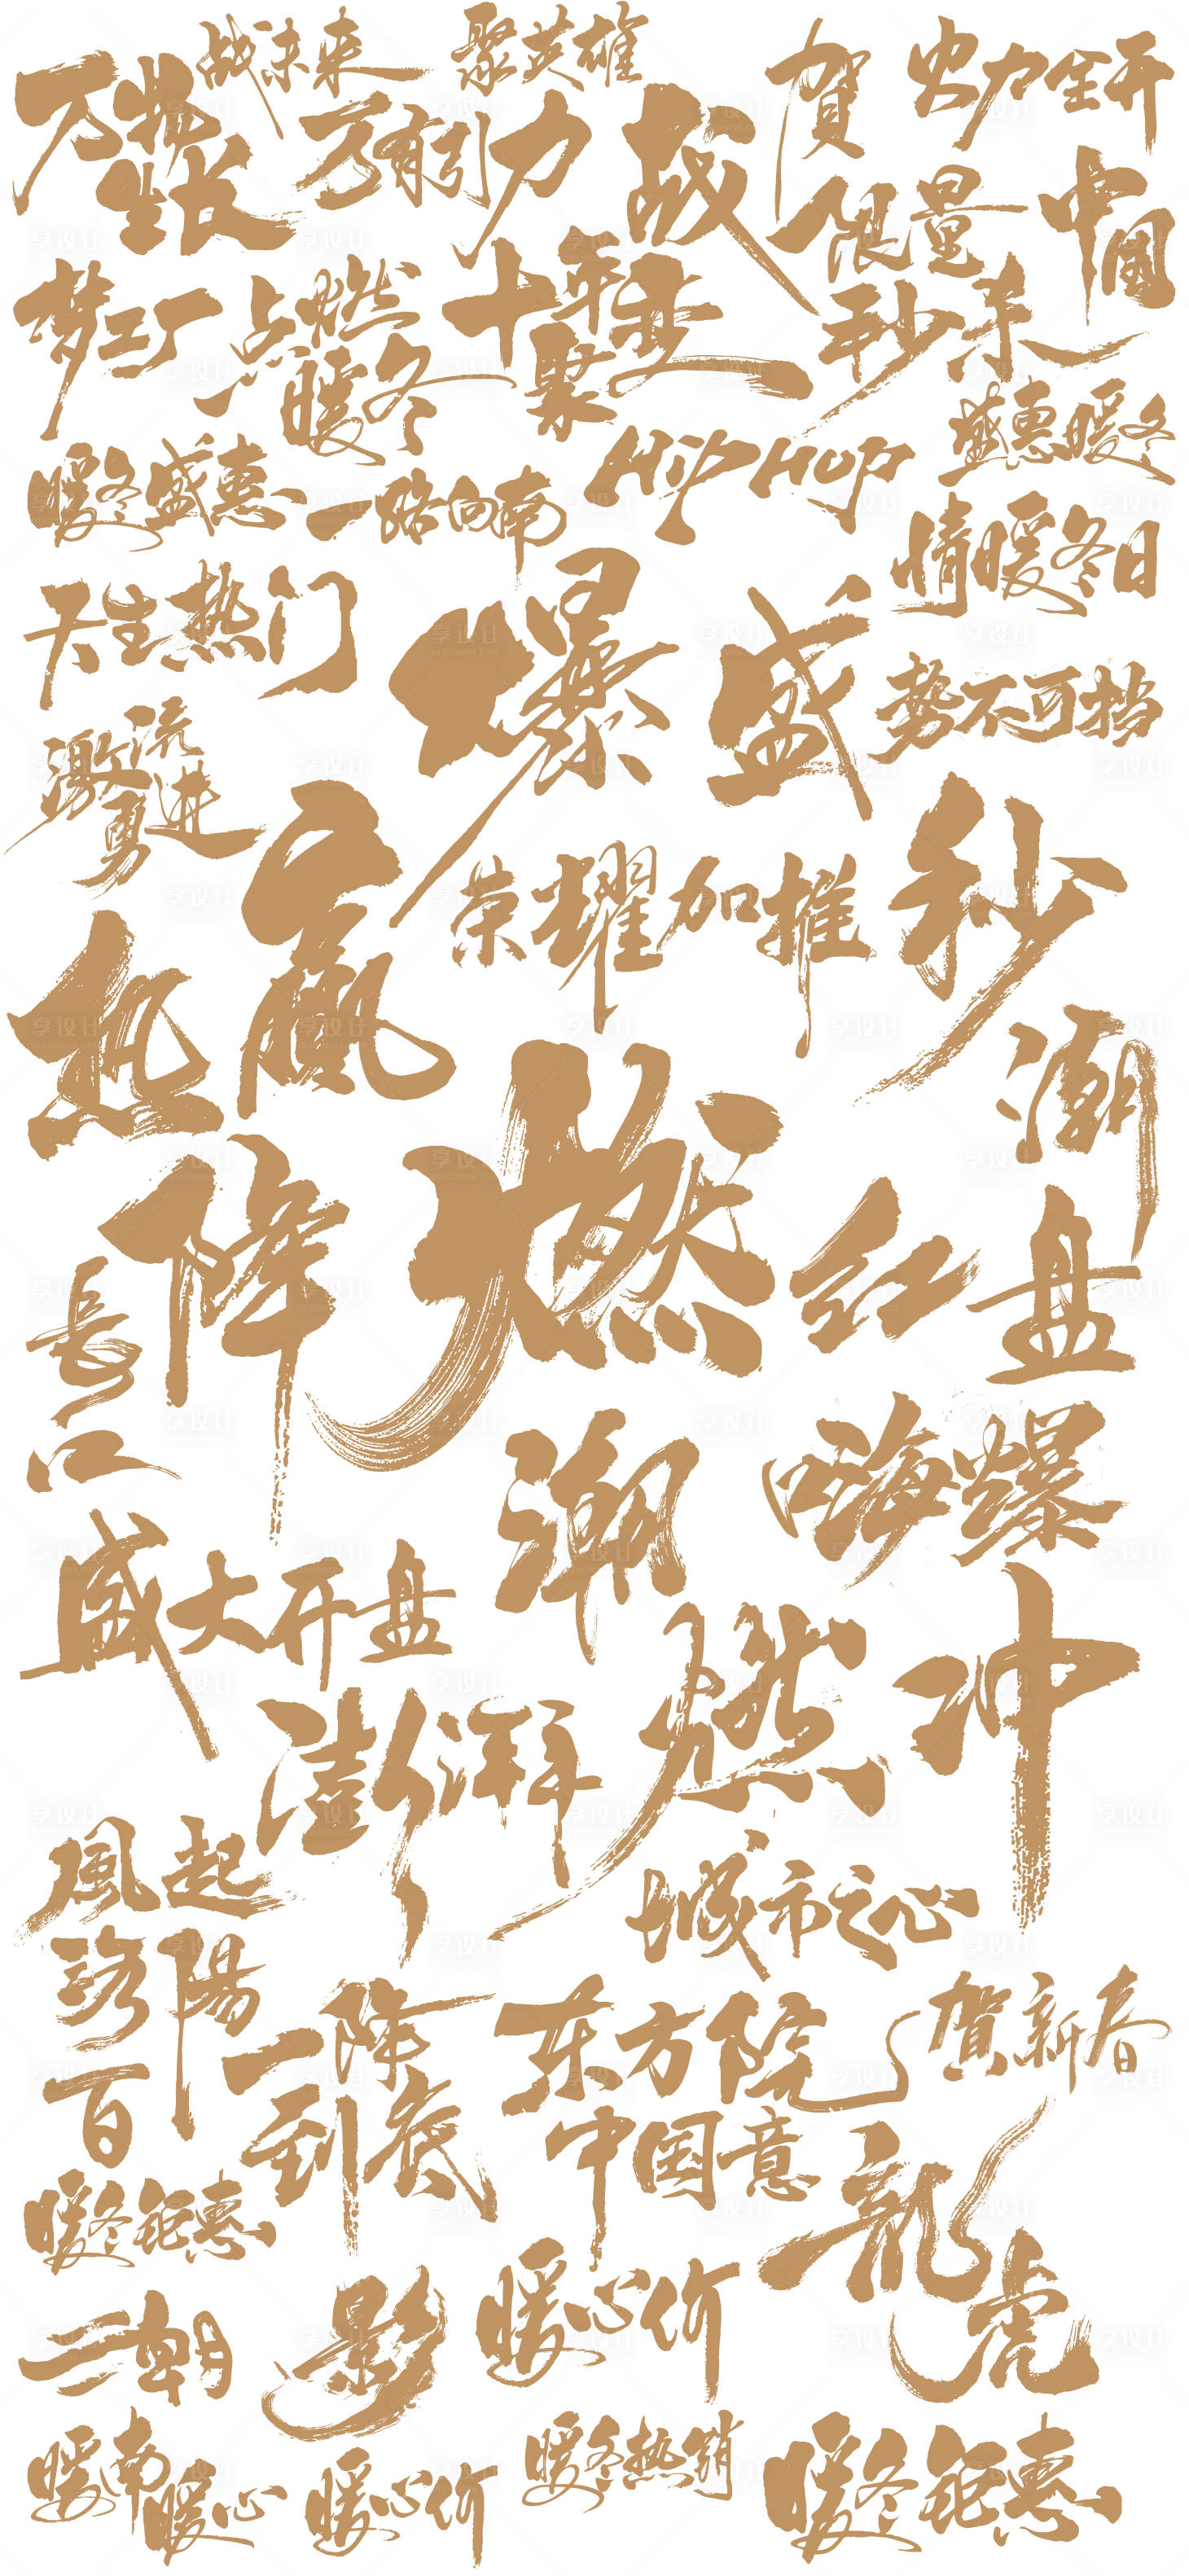 战未来
聚英雄
贺
火力全开
万物
生长
万有引力
战
限量
秒杀
中国
梦工厂
点燃
暖冬
十年
聚变
盛惠暖冬
暖冬盛惠
一路向南
HIP HOP
情暖冬日
天生热门
爆
盛
势不可挡
激流
勇进
赢
荣耀加推
秒
热
潮
燃
降
红盘
长江
潮
嗨爆
盛大开盘
燃
冲
澎湃
風起
城市之心
洛陽
一降
到底
东方院
贺新春
百
中国意
龍虎
暖冬钜惠
暖心价
二朝
影
暖南
暖心
暖心价
暖冬热销
暖冬钜惠
享设计